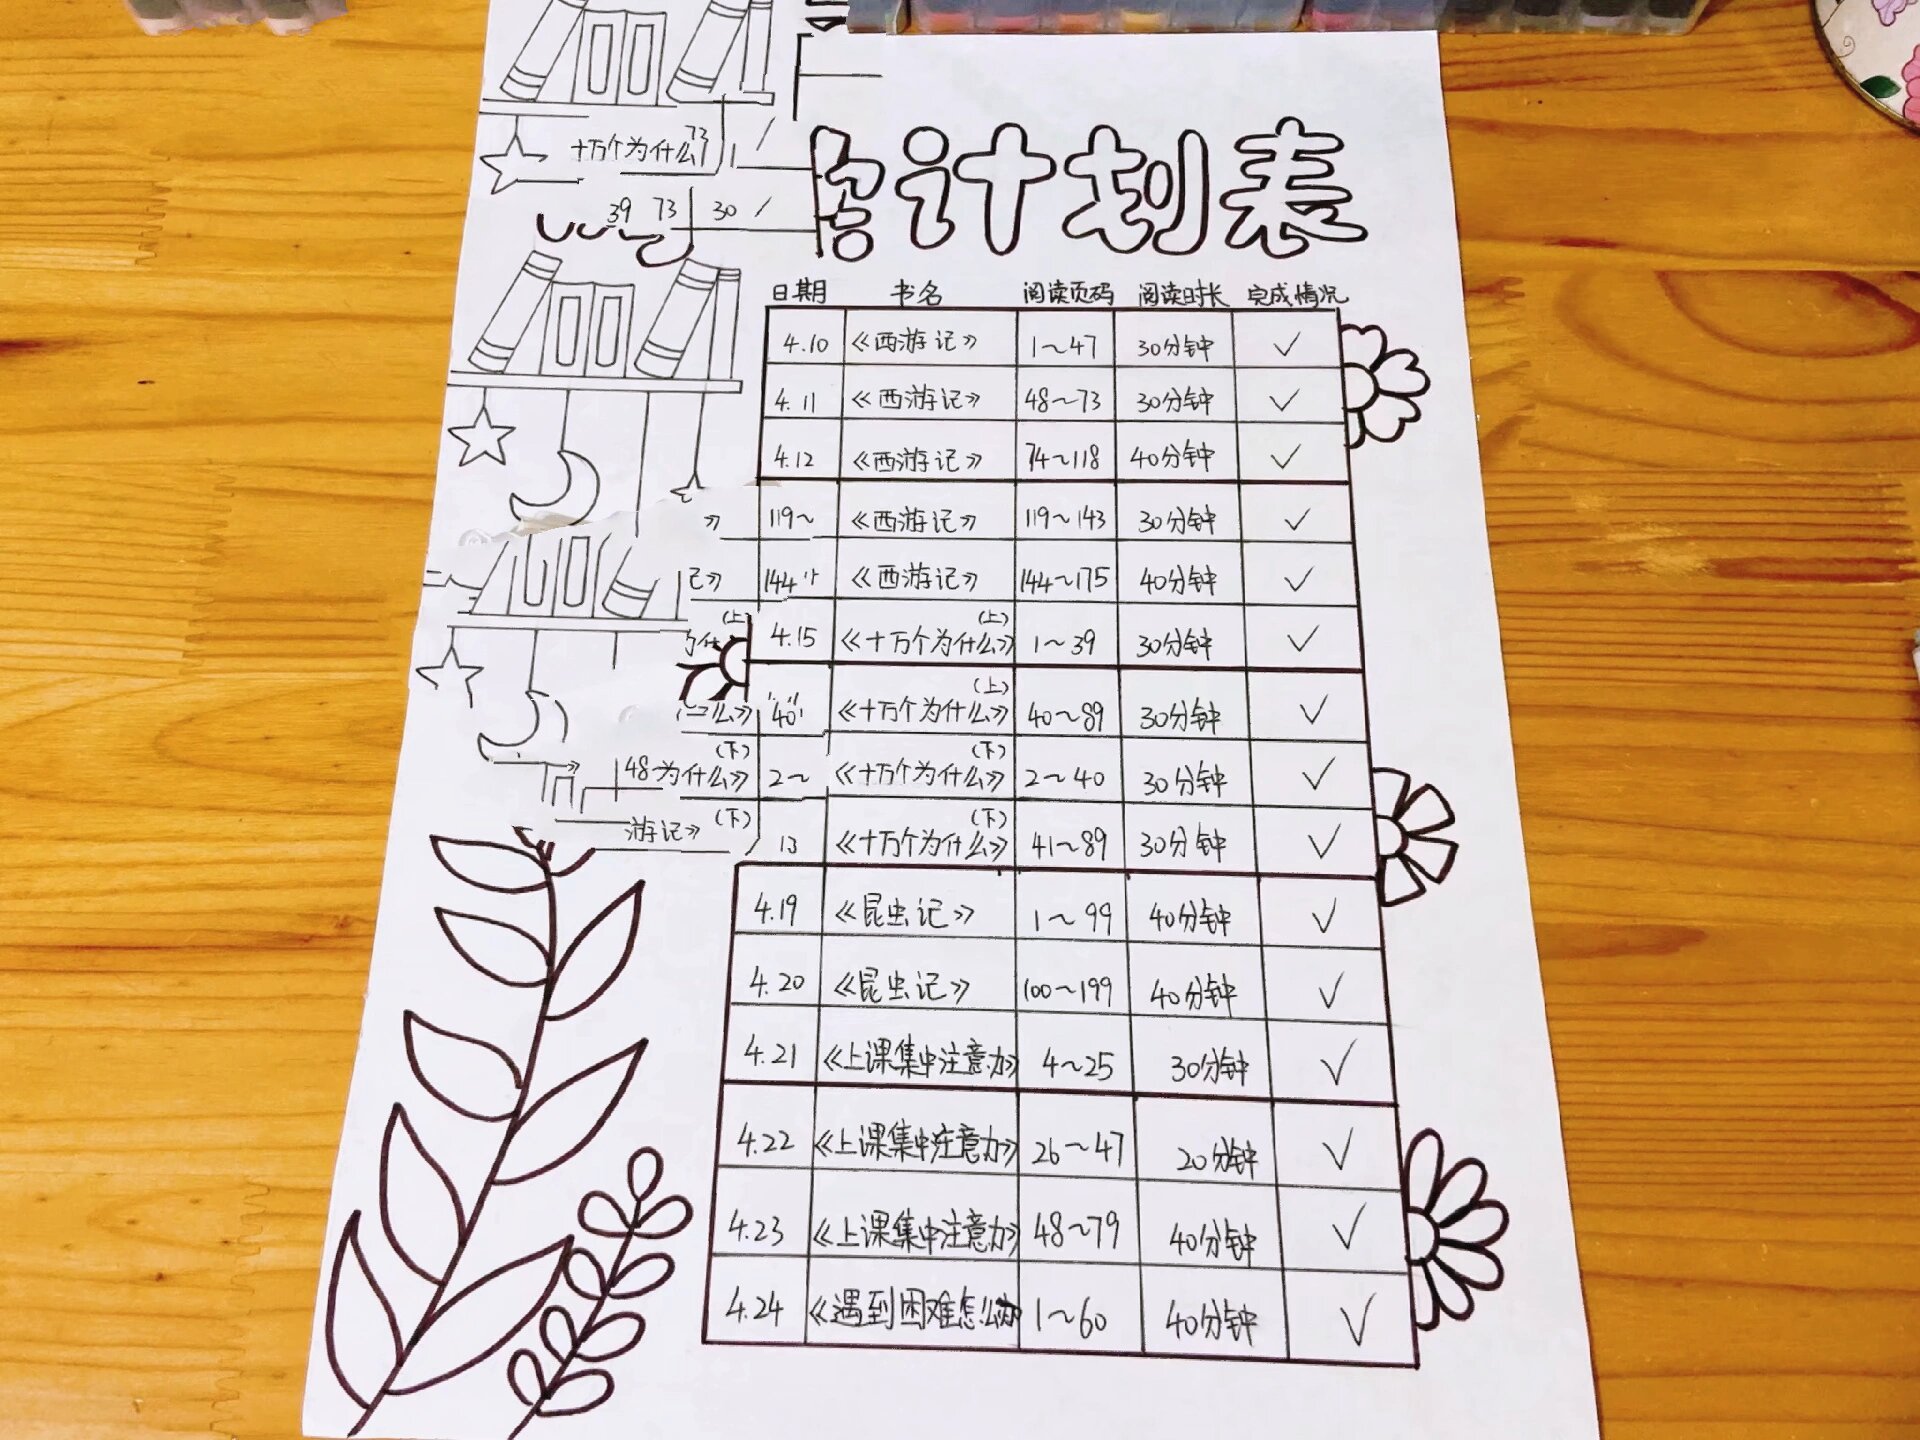 十万个为什么 73 1 /
39 73 30 /
计划表
日期 书名 阅读页码 阅读时长 完成情况
4.10 《西游记》 1~47 30分钟 ✓
4.11 《西游记》 48~73 30分钟 ✓
4.12 《西游记》 74~118 40分钟 ✓
》 119~ 《西游记》 119~143 30分钟 ✓
记》 144 《西游记》 144~175 40分钟 ✓
(上) 4.15 《十万个为什么》(上) 1~39 30分钟 ✓
么》 40 《十万个为什么》(上) 40~89 30分钟 ✓
48为什么》(下) 2~ 《十万个为什么》(下) 2~40 30分钟 ✓
游记》 (下) 13 《十万个为什么》(下) 41~89 30分钟 ✓
4.19 《昆虫记》 1~99 40分钟 ✓
4.20 《昆虫记》 100~199 40分钟 ✓
4.21 《上课集中注意力》 4~25 30分钟 ✓
4.22 《上课集中注意力》 26~47 20分钟 ✓
4.23 《上课集中注意力》 48~79 40分钟 ✓
4.24 《遇到困难怎么办 1~60 40分钟 ✓